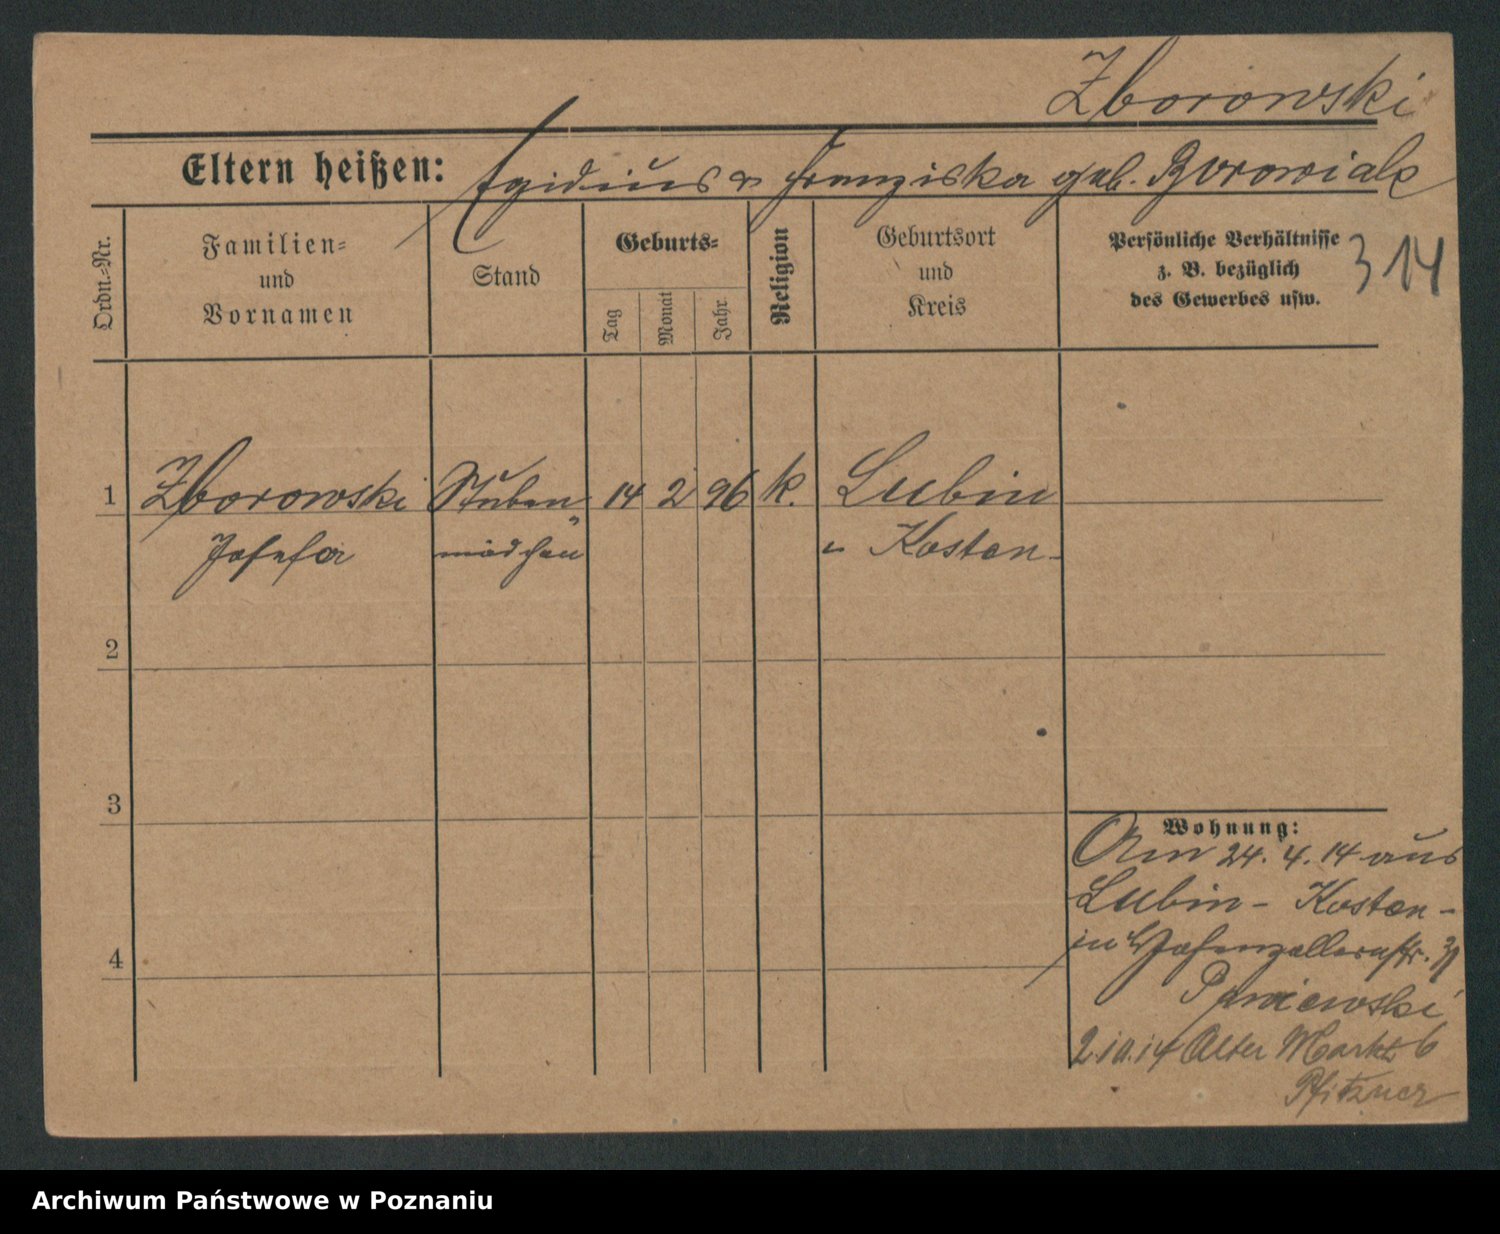 Zborowski
Eltern heißen: Egidius & Franziska geb. Borowiak
Ordn.-Nr.
Familien-
und
Vornamen
Stand
Geburts-
Tag
Monat
Jahr
Religion
Geburtsort
und
Kreis
Persönliche Verhältnisse
z. B. bezüglich
des Gewerbes usw.
314
1 Zborowski Stuben 14 2 96 k. Lubin
Josefa mädchen Kosten
2
3
4
Wohnung:
Am 24. 4. 14 aus
Lubin - Kosten -
in Hohenzollernstr. 31
2.10.14 Alter Markt 6
Pfitzner
Archiwum Państwowe w Poznaniu